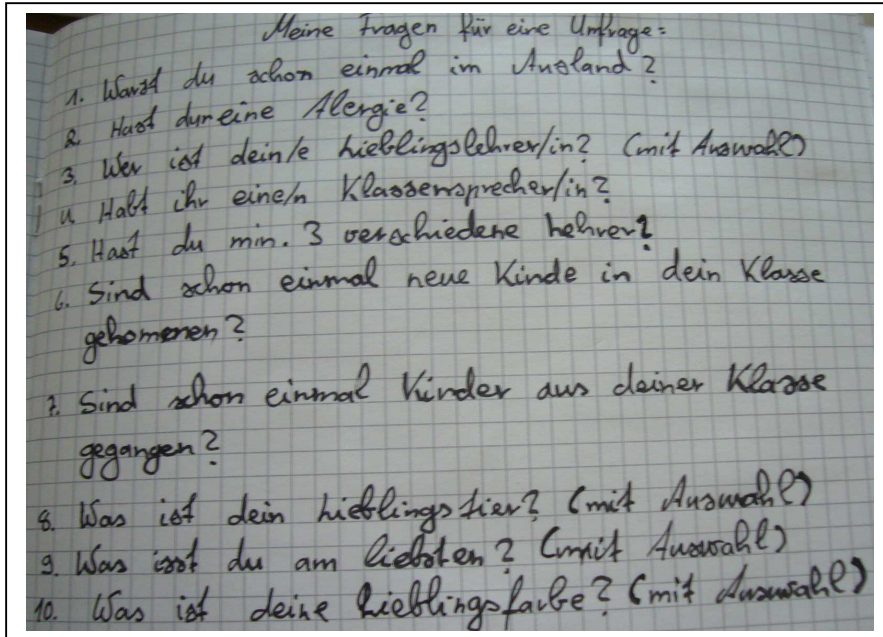 Meine Fragen für eine Umfrage:
1. Warst du schon einmal im Ausland?
2. Hast du eine Alergie?
3. Wer ist dein/e Lieblingslehrer/in? (mit Auswahl)
4. Habt ihr eine/n Klassensprecher/in?
5. Hast du min. 3 verschiedene Lehrer?
6. Sind schon einmal neue Kinde in dein Klasse
gekomenen?
7. Sind schon einmal Kinder aus deiner Klasse
gegangen?
8. Was ist dein Lieblingstier? (mit Auswahl)
9. Was isst du am liebsten? (mit Auswahl)
10. Was ist deine Lieblingsfarbe? (mit Auswahl)